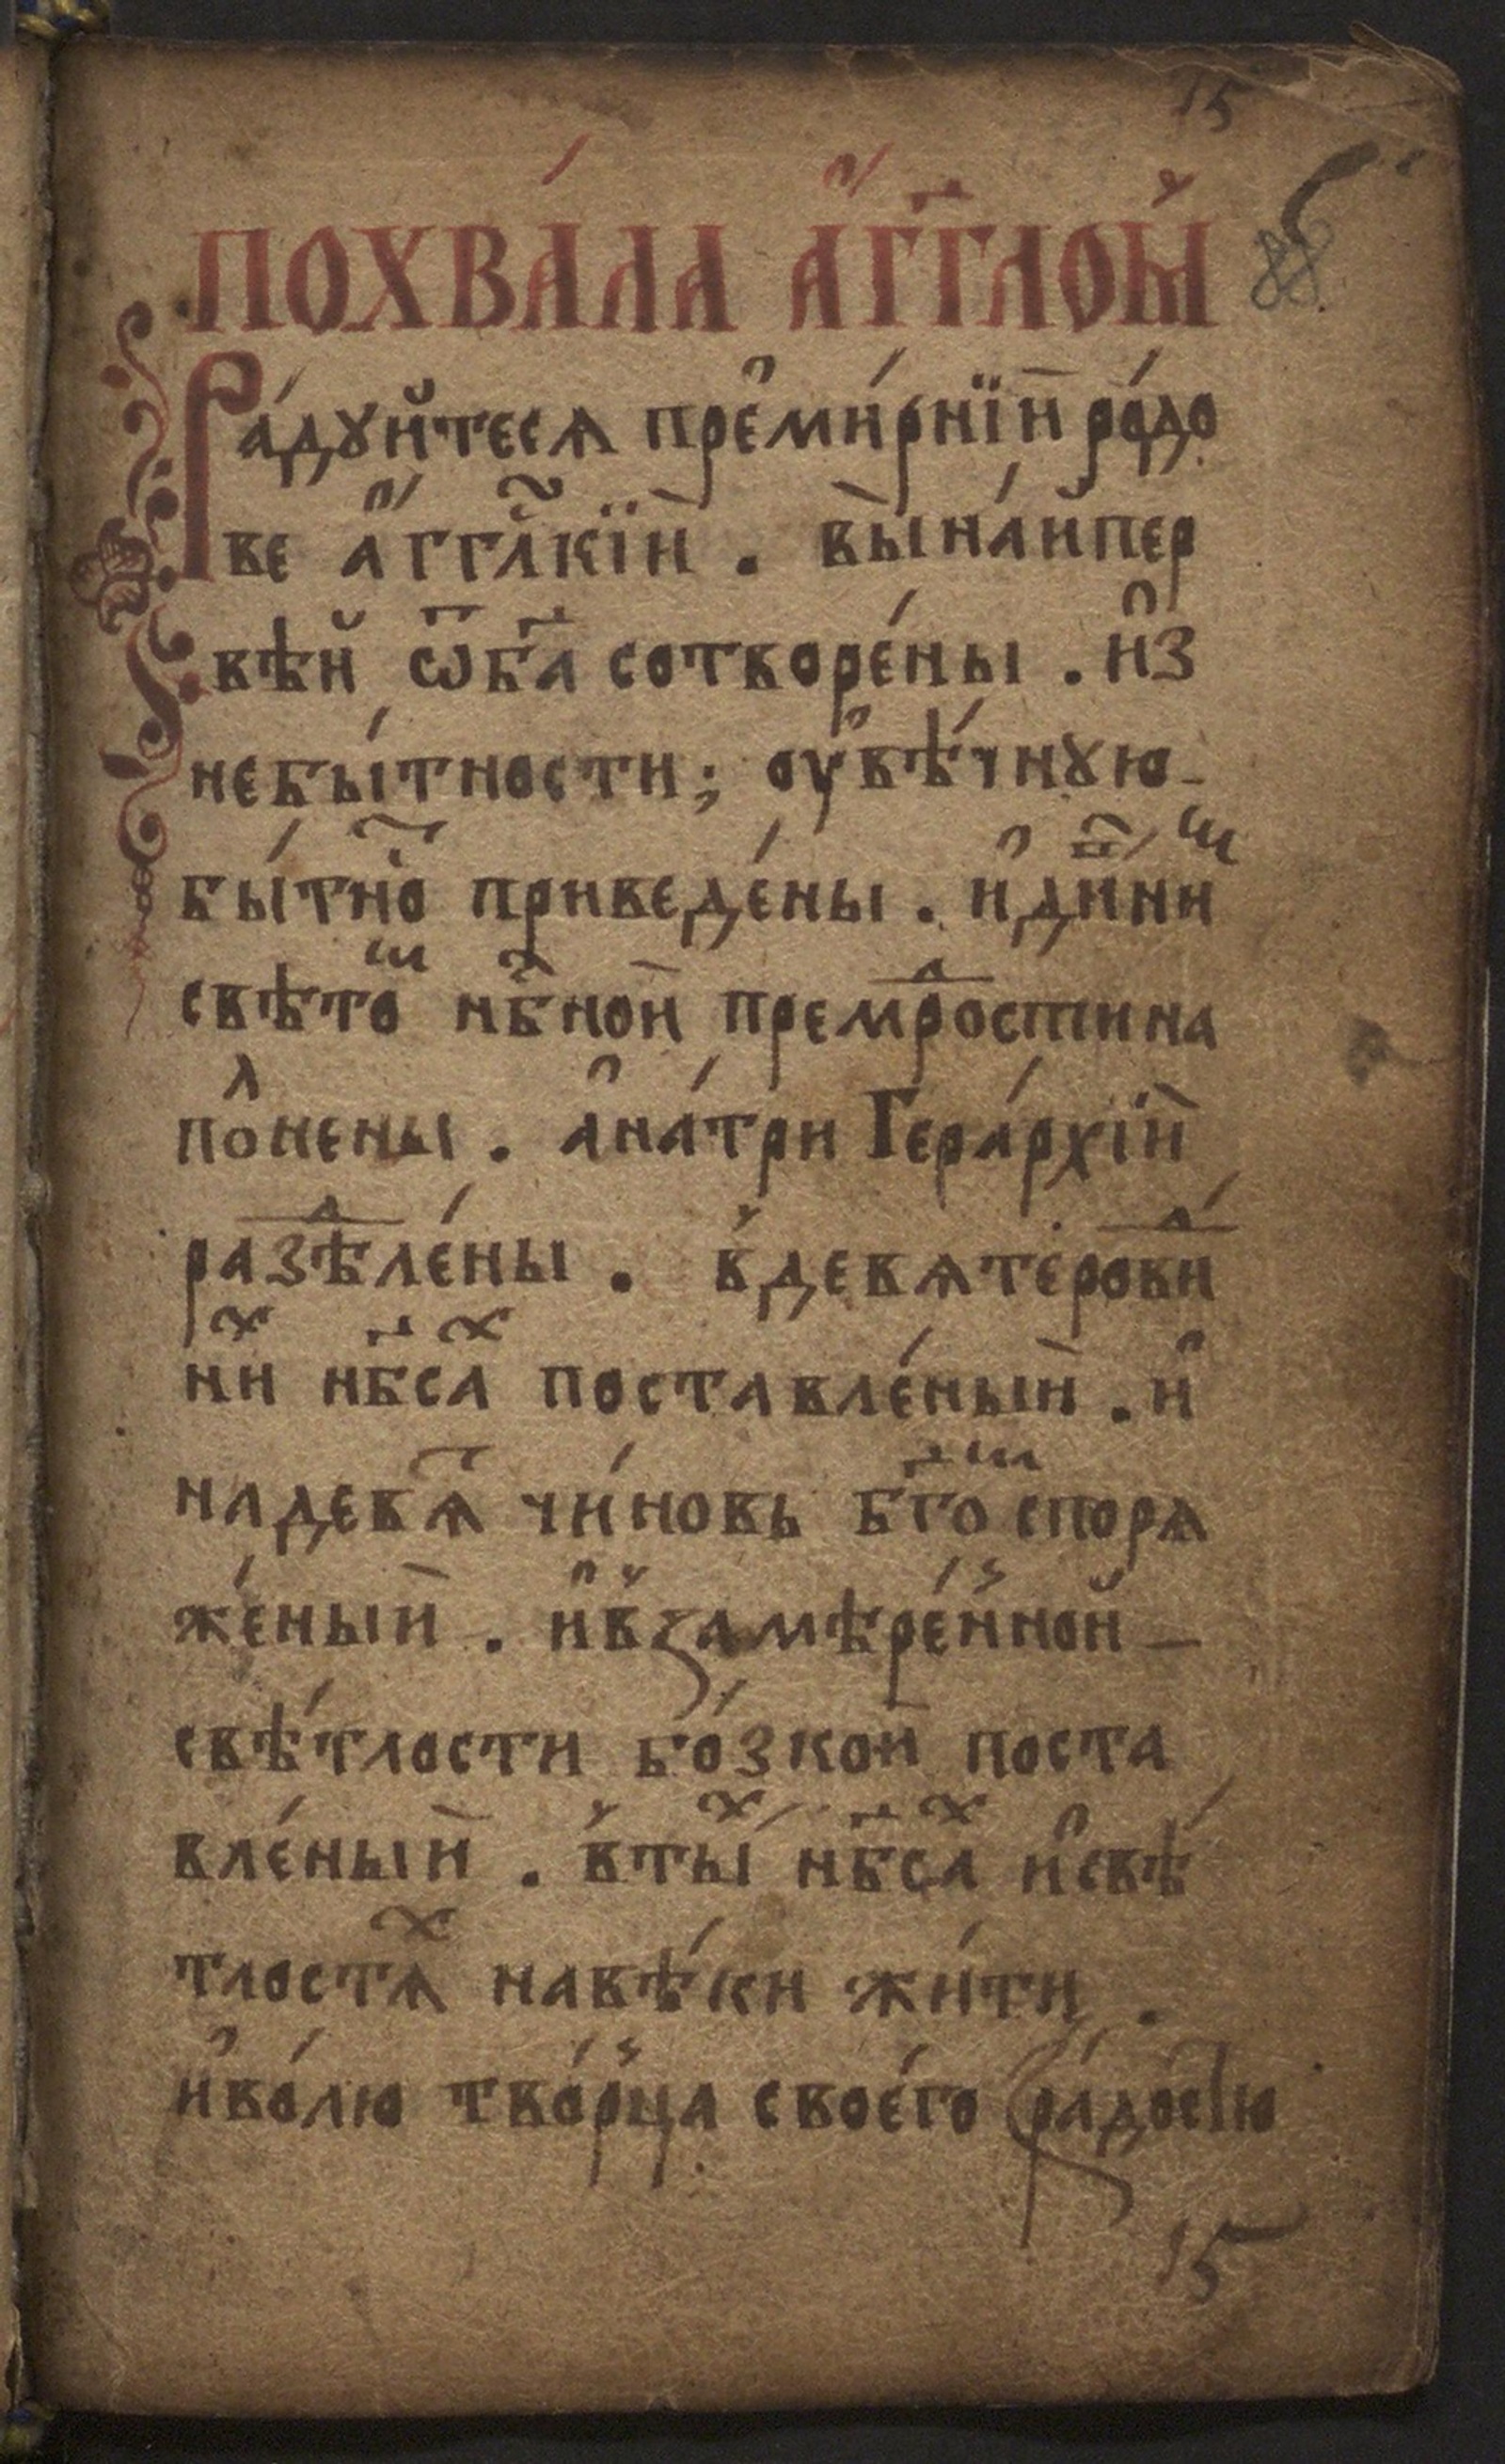 15
ПОХВА́ЛА А҆́ГГ҃ЛОМЪ
88
Ра́дꙋйтесѧ преми́рнїи ро́до
ве а҆́гг҃лкїи . вы на́йпер
вѣй ѿ б҃га сотворе́ны . и҆з
небы́тности; оу҆ вѣ́чнꙋю-
бы́тно приведе́ны . и҆ ди́ни
свѣто нб҃ной премⷣрости на
поⷧнены . а҆ на́ три Гера́рхїи
разⷣѣле́ны . в̾ девѧтеро ви
ниⷯ нб҃саⷯ поставле́ный . и҆
на девѧⷮ чи́новь бг҃оⷨ спорѧ
же́ный . и҆ в̾ замѣре́нной —
свѣ́тлости бо́зкой поста
вле́ный . в̾ ты́ⷯ нб҃саⷯ и҆ свѣ́
тлостѧⷯ на вѣ́ки жи́ти .
и҆ во́лю тво́рца своего з ра́достю
15